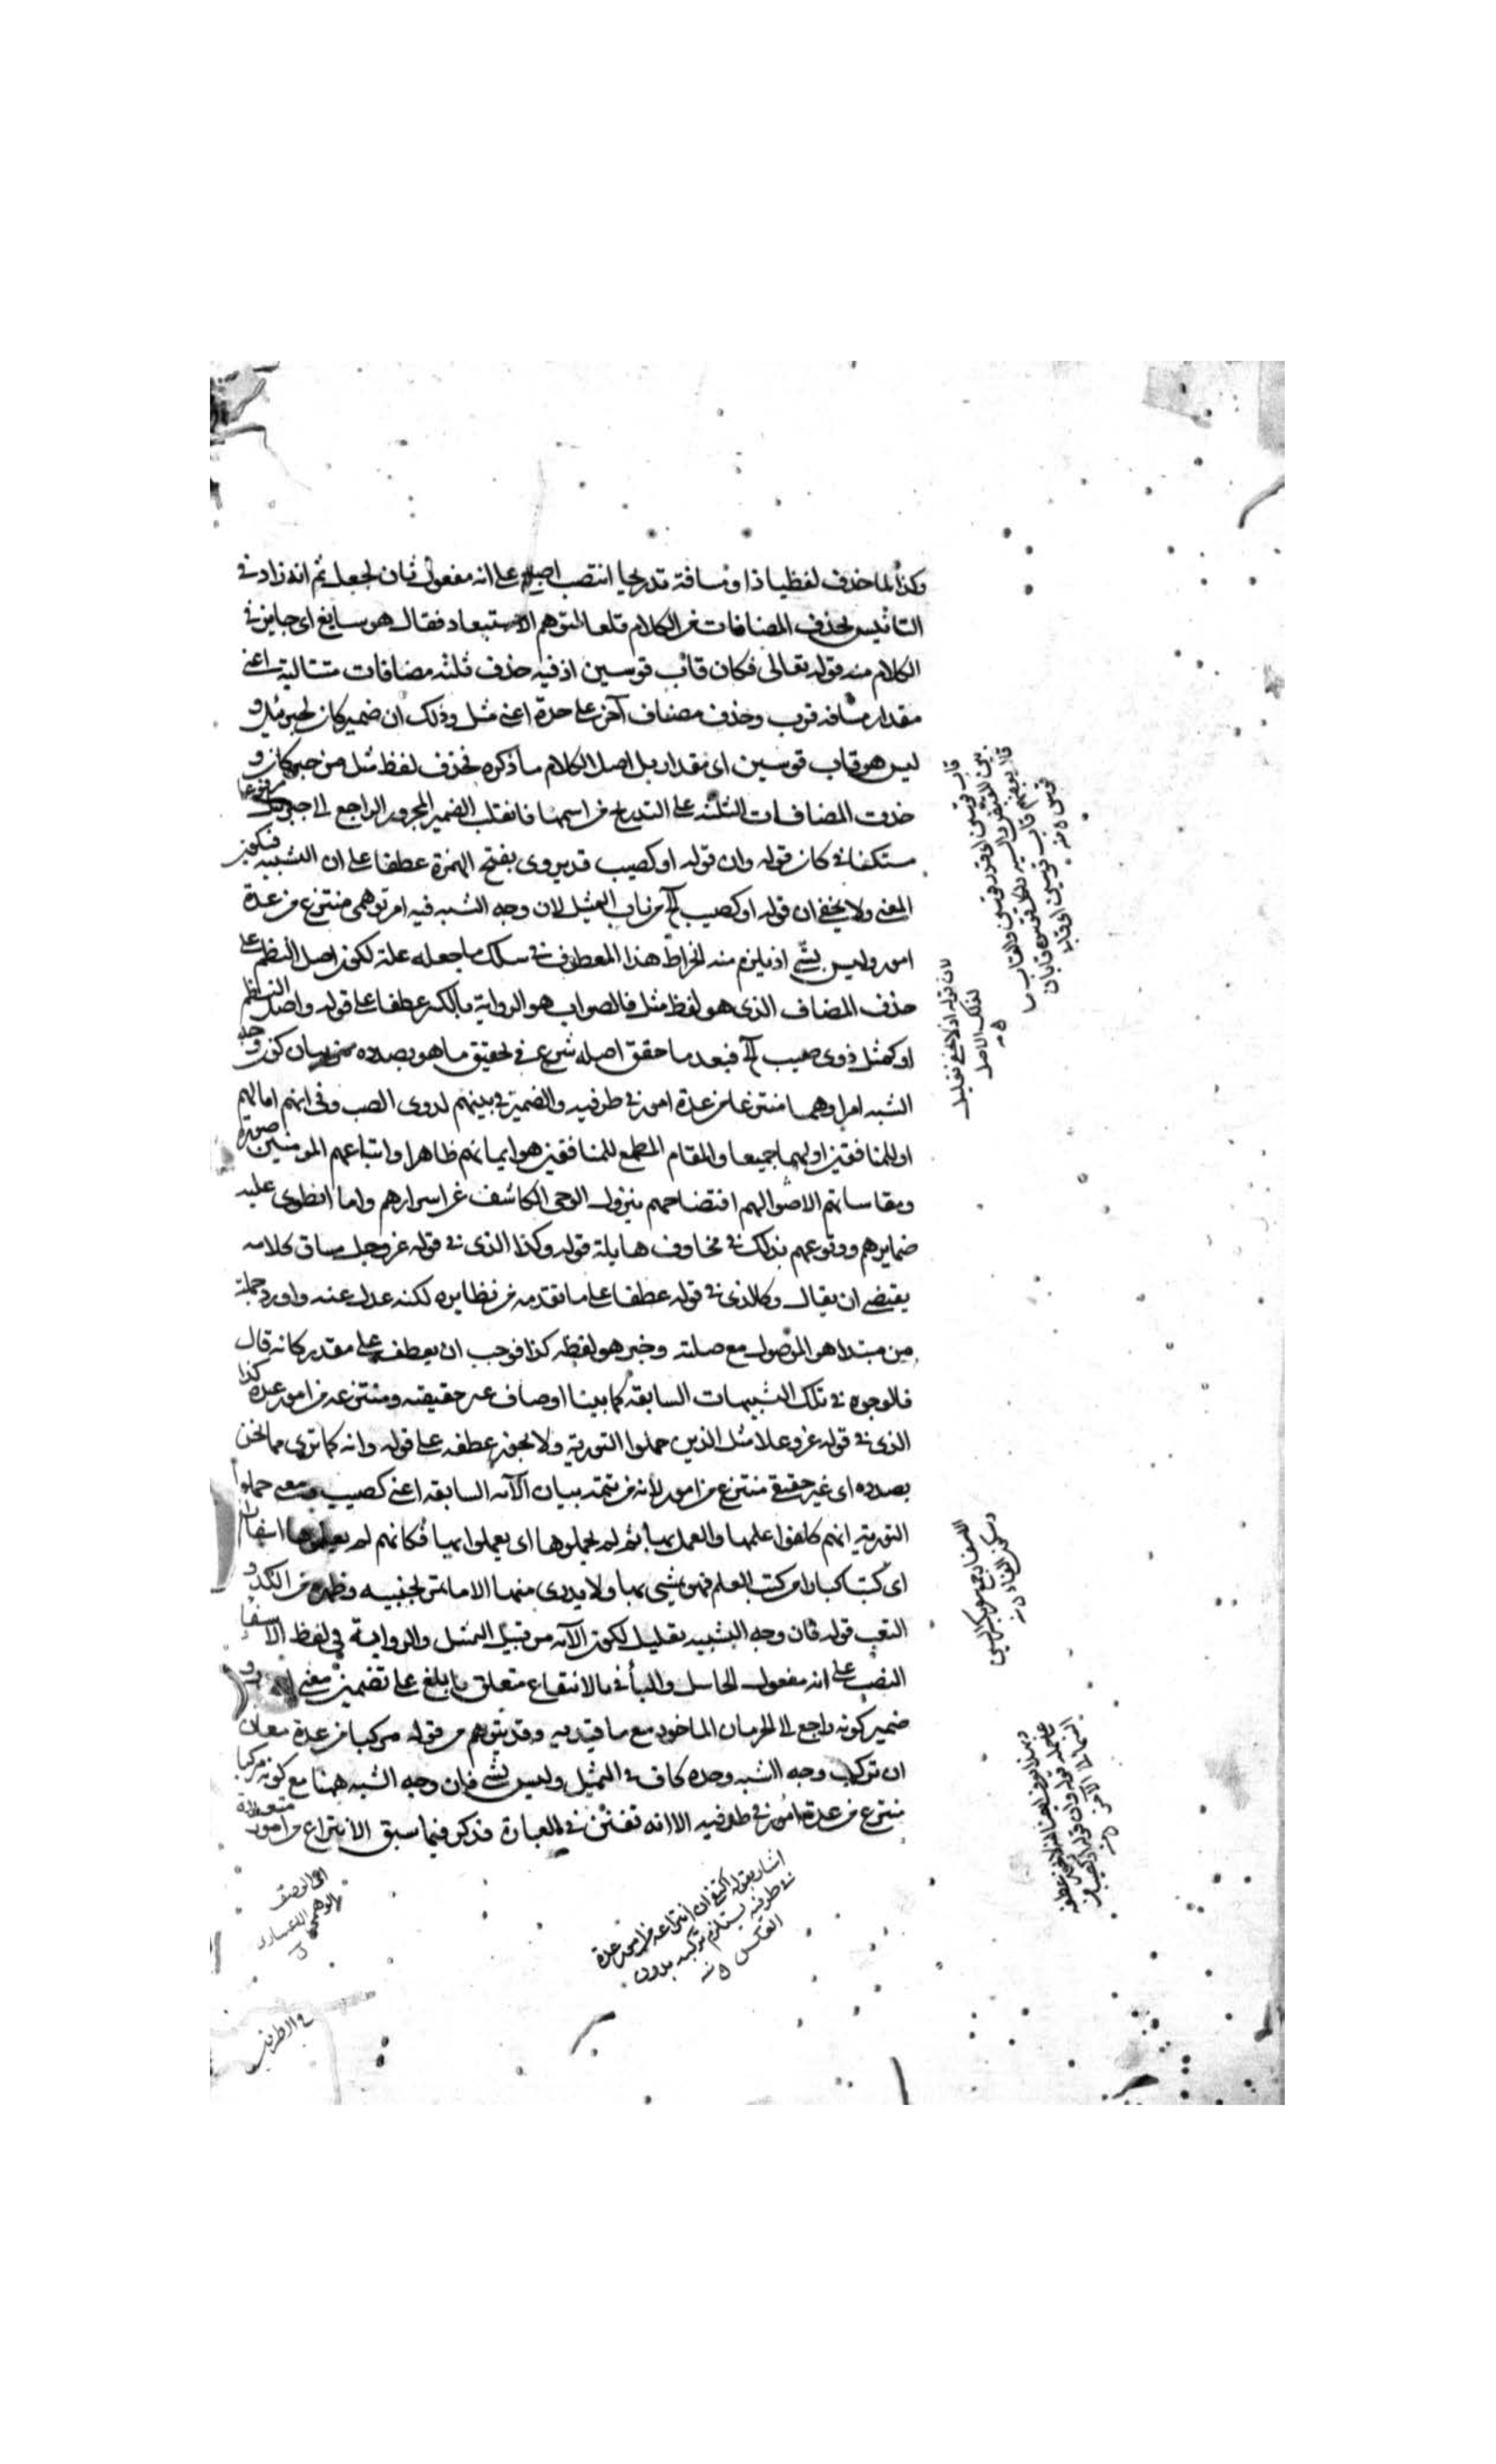 وكذا لما حذف لفظيا ذا ومسافة تدريجيا انتصب اصبع على انه مفعول ثان لجعل ثم انه زاد في
التأنيس بحذف المضافات من الكلام قلعا لتوهم الاستبعاد فقال هو سايغ اى جايز في
الكلام منه قوله تعالى فكان قاب قوسين اذ فيه حذف ثلثه مضافات متتالية اعنى
مقدار مسافه قرب وحذف مضاف آخر على حدة اعنى مثل وذلك ان ضمير كان لجبرئيل و
ليس هو قاب قوسين اى مقدار بل اصل الكلام ما ذكره فحذف لفظ مثل من خبر كان و
حذفت المضافات الثلثه على التدريج من اسمها فانقلب الضمير المجرور الراجع الى جبرئيل مرفوعا
مستكنا في كان قوله وان قوله او كصيب قد يروى بفتح الهمزة عطفا على ان التشبيه فيكون
المعنى ولا يخفى ان قوله او كصيب الخ من باب التمثيل لان وجه الشبه فيه امر توهمى منتزع من عدة
امور وليس بشئ اذ يلزم منه انخراط هذا المعطوف في سلك ما جعله علة لكون اصل النظم على
حذف المضاف الذى هو لفظ مثل فالصواب هو الرواية بالكسر عطفا على قوله واصل النظم
او كمثل ذوى صيب الخ فبعد ما حقق اصله شرع في تحقيق ما هو بصدده من بيان كون وجه
الشبه امرا وهميا منتزعا من عدة امور في طرفيه والضمير في بينهم لذوى الصيب وفي انهم اما لهم
او للمنافقين او لهما جميعا والمقام المطمع للمنافقين هو ايمانهم ظاهرا واتباعهم المومنين صورة
ومقاساتهم الاهوال هم افتضاحهم بنزول الوحى الكاشف عن اسرارهم وما انطوى عليه
ضمايرهم ووقوعهم بذلك في مخاوف هايلة قوله وكذا الذى في قوله عز وجل مساق كلامه
يقتضى ان يقال وكالذى في قوله عطفا على ما تقدمه من نظايره لكنه عدل عنه واورد جملة
من مبتدا هو الموصول مع صلته وخبر هو لفظه كذا فوجب ان يعطف على مقدر كانه قال
فالوجوه في تلك التشبيهات السابقه كما بينا اوصاف غير حقيقيه ومنتزعه من امور عدة كذا
الذى في قوله عز وعلا مثل الذين حملوا التورية ولا يجوز عطفه على قوله وانه كما ترى مما نحن
بصدده اى غير حقيقي منتزع من امور لانه من تتمة بيان الآيه السابقه اعنى كصيب ومعنى حملوا
التورية انهم كلفوا علمها والعمل بها ثم لم يحملوها اى يعملوا بها فكانهم لم يحملوها اسفارا
اى كتبا كبارا من كتب العلم فهو يمشى بها ولا يدرى منها الا ما يمر بجنبيه وظهره من الكد و
التعب قوله فان وجه التشبيه تعليل لكون الآيه من قبيل التمثيل والرواية في لفظ الاسفار
النصب على انه مفعول الحامل والباء في بالانتفاع متعلق بابلغ على تضمين معنى
ضمير كونه راجع الى الحرمان الماخوذ مع ما قيد به وقد يتوهم من قوله مركبا من عدة معان
ان تركب وجه الشبه وحده كاف في التمثيل وليس بشئ فان وجه الشبه ههنا مع كونه مركبا
منتزع من عدة امور في طرفيه الا انه تفنن في العبارة فذكر فيما سبق الانتزاع من امور متعددة
لان قوله اذ لا يخفى تعليل
لذلك الاصل
اشار بقوله اكتفى ان انتزاعه من امور عدة
في طرفيه يستلزم تركبه بدون
العكس
اى الوصف
الوهمى الاعتبارى
في الطرفين